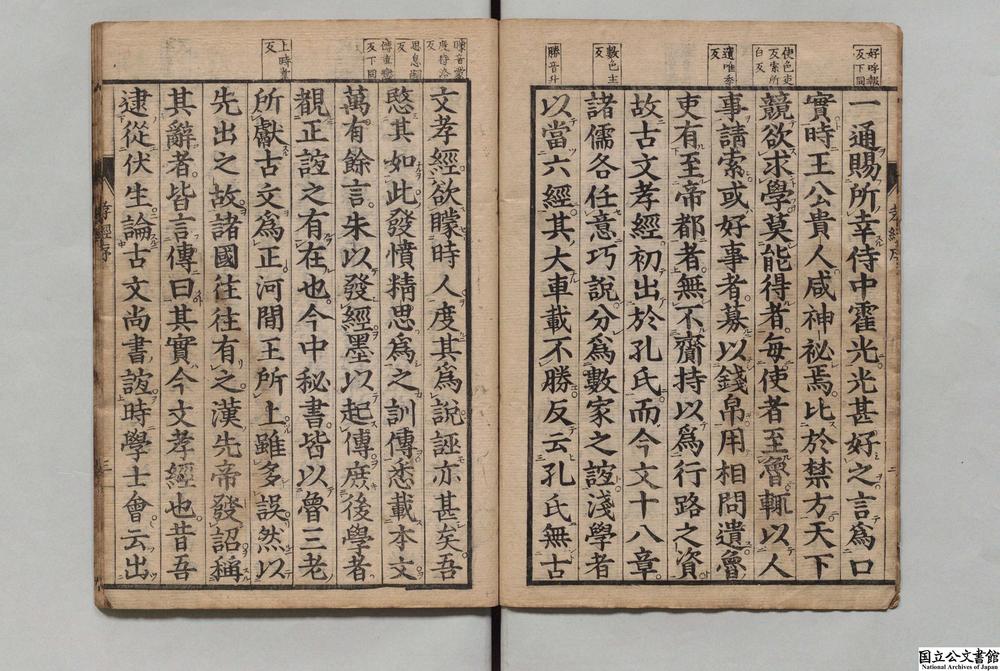 好呼報
反下同
使色吏
反索所
白反
遺唯季
反
數色主
反
勝音升
一通賜所幸侍中霍光光甚好之言爲口
實時王公貴人咸神祕焉比於禁方天下
競欲求學莫能得者毎使者至魯輒以人
事請索或好事者募以錢帛用相問遺魯
吏有至帝都者無不齎持以爲行路之資
故古文孝經初出於孔氏而今文十八章
諸儒各任意巧說分爲數家之誼淺學者
以當六經其大車載不勝反云孔氏無古
矇音蒙
度待洛
反
思息嗣
反
傳直戀
反下同
上時掌
反
文孝經欲矇時人度其爲說誣亦甚矣吾
愍其如此發憤精思爲之訓傳悉載本文
萬有餘言朱以發經墨以起傳庶後學者
覩正誼之有在也今中祕書皆以魯三老
所獻古文爲正河間王所上雖多誤然以
先出之故諸國往往有之漢先帝發詔稱
其辭者皆言傳曰其實今文孝經也昔吾
逮從伏生論古文尚書誼時學士會云出
孝經序
三
国立公文書館
National Archives of Japan